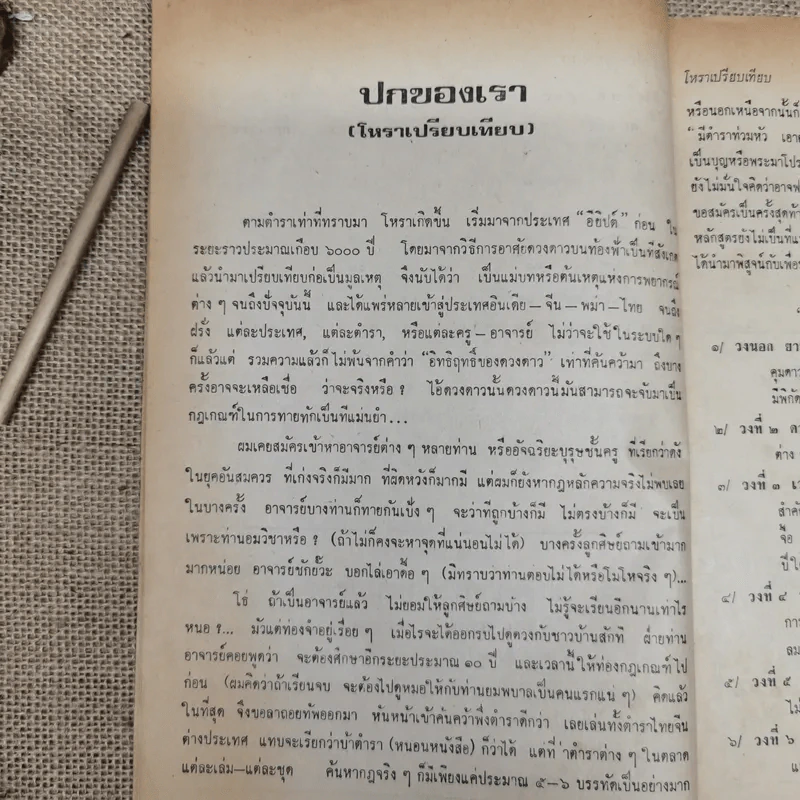 ปกของเรา
(โหราเปรียบเทียบ)
ตามตำราเท่าที่ทราบมา โหราเกิดขึ้น เริ่มมาจากประเทศ “อียิปต์” ก่อน ใน
ระยะราวประมาณเกือบ ๖๐๐๐ ปี โดยมาจากวิธีการอาศัยดวงดาวบนท้องฟ้าเป็นที่สังเกต
แล้วนำมาเปรียบเทียบก่อเป็นมูลเหตุ จึงนับได้ว่า เป็นแม่บทหรือต้นเหตุแห่งการพยากรณ์
ต่าง ๆ จนถึงปัจจุบันนี้ และได้แพร่หลายเข้าสู่ประเทศอินเดีย – จีน – พม่า – ไทย จนถึง
ฝรั่ง แต่ละประเทศ, แต่ละตำรา, หรือแต่ละครู – อาจารย์ ไม่ว่าจะใช้ในระบบใด ๆ
ก็แล้วแต่ รวมความแล้วก็ไม่พ้นจากคำว่า “อิทธิฤทธิ์ของดวงดาว” เท่าที่ค้นคว้ามา ถึงบาง
ครั้งอาจจะเหลือเชื่อ ว่าจะจริงหรือ ? ไอ้ดวงดาวนั้นดวงดาวนี้มันสามารถจะจับมาเป็น
กฎเกณฑ์ในการทายทักเป็นที่แม่นยำ...
ผมเคยสมัครเข้าหาอาจารย์ต่าง ๆ หลายท่าน หรืออัจฉริยะบุรุษชั้นครู ที่เรียกว่าดัง
ในยุคอันสมควร ที่เก่งจริงก็มีมาก ที่ผิดหวังก็มากมี แต่ผมก็ยังหากฎหลักความจริงไม่พบเลย
ในบางครั้ง อาจารย์บางท่านก็ทายกันเบ่ง ๆ จะว่าที่ถูกบ้างก็มี ไม่ตรงบ้างก็มี จะเป็น
เพราะท่านอมวิชาหรือ ? (ถ้าไม่ก็คงจะหาจุดที่แน่นอนไม่ได้) บางครั้งลูกศิษย์ถามเข้ามาก
มากหน่อย อาจารย์ชักยั๊วะ บอกไล่เอาดื้อ ๆ (มิทราบว่าท่านตอบไม่ได้หรือโมโหจริง ๆ)...
โธ่ ถ้าเป็นอาจารย์แล้ว ไม่ยอมให้ลูกศิษย์ถามบ้าง ไม่รู้จะเรียนอีกนานเท่าไร
หนอ ?... มัวแต่ท่องจำอยู่เรื่อย ๆ เมื่อไรจะได้ออกรบไปดูดวงกับชาวบ้านสักที ฝ่ายท่าน
อาจารย์คอยพูดว่า จะต้องศึกษาอีกระยะประมาณ ๑๐ ปี และเวลานี้ให้ท่องกฎเกณฑ์ไป
ก่อน (ผมคิดว่าถ้าเรียนจบ จะต้องไปดูหมอให้กับท่านยมพบาลเป็นคนแรกแน่ ๆ) คิดแล้ว
ในที่สุด จึงขอลาถอยทัพออกมา หันหน้าเข้าค้นคว้าพึ่งตำราดีกว่า เลยเล่นทั้งตำราไทยจีน
ต่างประเทศ แทบจะเรียกว่าบ้าตำรา (หนอนหนังสือ) ก็ว่าได้ แต่ที่ ตำราต่าง ๆ ในตลาด
แต่ละเล่ม—แต่ละชุด ค้นหากฎจริง ๆ ก็มีเพียงแค่ประมาณ ๕–๖ บรรทัดเป็นอย่างมาก
โหราเปรียบเทียบ
หรือนอกเหนือจากนั้นก็
“มีตำราท่วมหัว
เป็นบุญหรือพระมาโปร
ยังไม่มั่นใจคิดว่าอาจ
ขอสมัครเป็นครั้งสุดท้า
หลักสูตรยังไม่เป็นที่แ
ได้นำมาพิสูจน์กับเพื่อน
๑/ วงนอก
คุมดา
มีพิกัด
๒/ วงที่ ๒
ต่าง
๓/ วงที่ ๓
สำคั
จื้อ
ปีใ
๔/ วงที่ ๔
การ
สม
๕/ วงที่ ๕
ไม่
๖/ วงที่ ๖